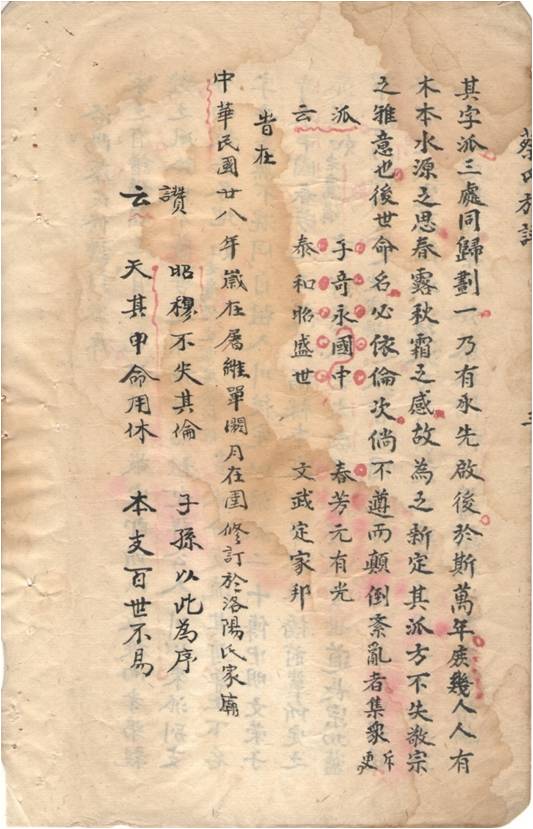 其字派三處同歸劃一乃有承先啟後於斯萬年庶幾人人有
木本水源之思春露秋霜之感故為之新定其派方不失敬宗
之雅意也後世命名必依倫次倘不遵而顛倒紊亂者集衆斥更
派 子奇永國中 春芳元有光
云 泰和昭盛世 文武定家邦
旹在
中華民國廿八年歲在屠維單閼月在圉修訂於洛陽氏家廟
讚 昭穆不失其倫 子孫以此為序
云 天其申命用休 本支百世不易